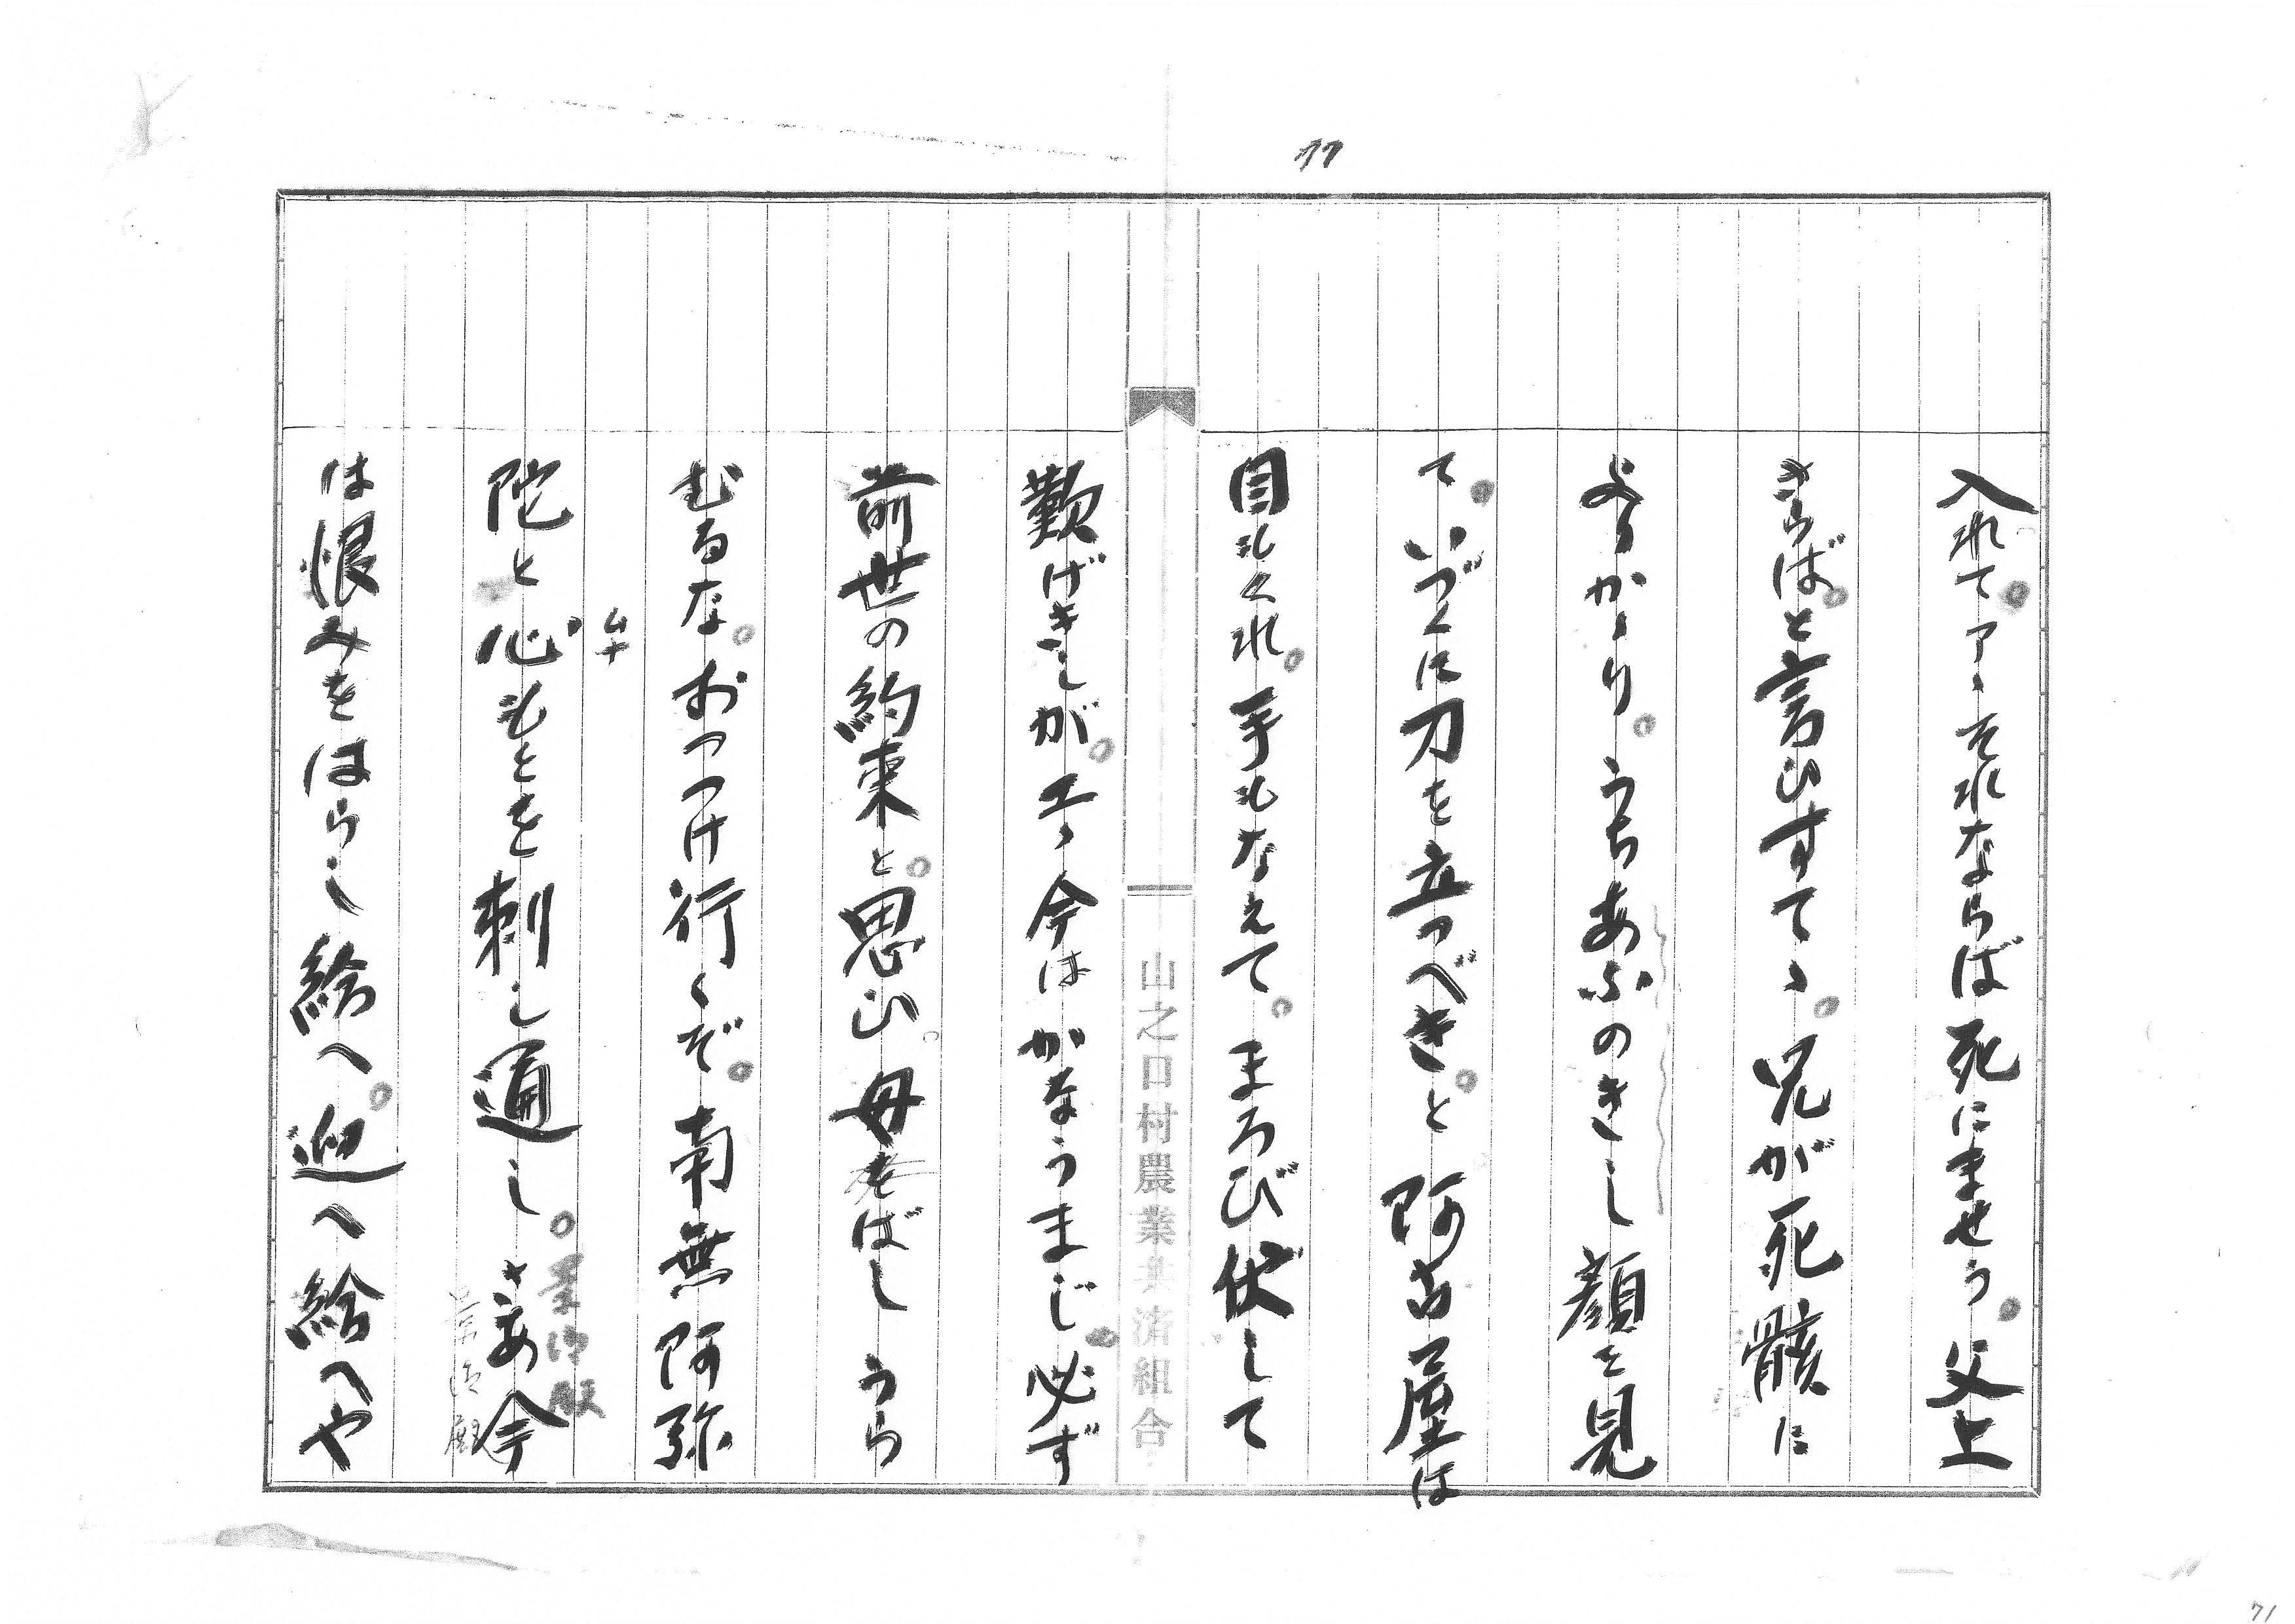 77
入れて。アヽそれならば死にませう。父上
さらば。と言ひすてヽ。兄が死骸に
よりかヽり。うちあふのきし顔を見
て。いづくに刀を立つべき。と阿古屋は
目もくれ。手もなえて。まろび伏して
歎げきしが。エヽ今はかなうまじ。必ず
前世の約束と。思ひ。母をばし うら
むるな。おつつけ行くぞ。南無阿弥
陀と心もとを刺し通し。さあ今
ムナ
景清殿
景清殿
は恨みをはらし給へ。迎へ給へや
山之口村農業共済組合
71